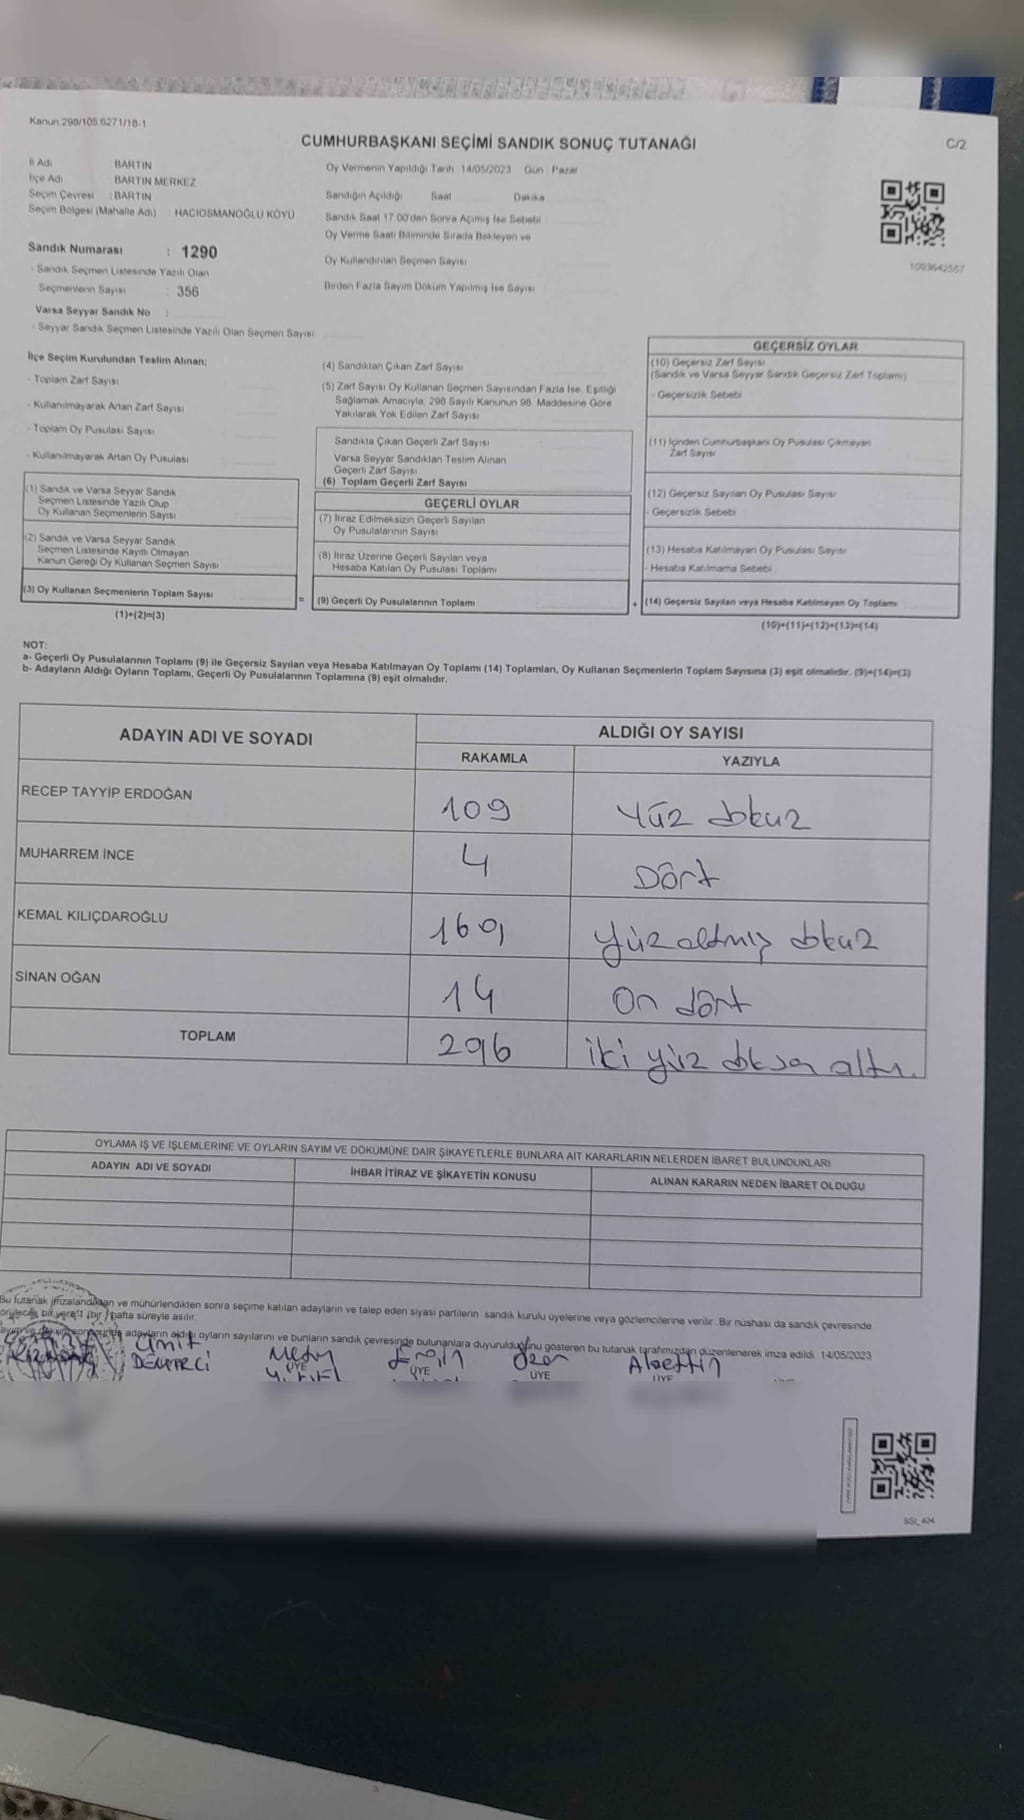 Kanun:298/105,6271/18-1
CUMHURBAŞKANI SEÇİMİ SANDIK SONUÇ TUTANAĞI
C/2
İl Adı BARTIN
İlçe Adı BARTIN MERKEZ
Seçim Çevresi : BARTIN
Seçim Bölgesi (Mahalle Adı) : HACIOSMANOĞLU KÖYÜ
Oy Vermenin Yapıldığı Tarih : 14/05/2023 Gün : Pazar
Sandığın Açıldığı Saat Dakika
Sandık Saat 17.00'den Sonra Açılmış İse Sebebi
Oy Verme Saati Bitiminde Sırada Bekleyen ve
Oy Kullandırılan Seçmen Sayısı
Birden Fazla Sayım Döküm Yapılmış İse Sayısı
1093642567
Sandık Numarası : 1290
- Sandık Seçmen Listesinde Yazılı Olan
Seçmenlerin Sayısı : 356
Varsa Seyyar Sandık No :
- Seyyar Sandık Seçmen Listesinde Yazılı Olan Seçmen Sayısı
İlçe Seçim Kurulundan Teslim Alınan;
- Toplam Zarf Sayısı
- Kullanılmayarak Artan Zarf Sayısı
- Toplam Oy Pusulası Sayısı
- Kullanılmayarak Artan Oy Pusulası
(1) Sandık ve Varsa Seyyar Sandık
Seçmen Listesinde Yazılı Olup
Oy Kullanan Seçmenlerin Sayısı
(2) Sandık ve Varsa Seyyar Sandık
Seçmen Listesinde Kayıtlı Olmayan
Kanun Gereği Oy Kullanan Seçmen Sayısı
(3) Oy Kullanan Seçmenlerin Toplam Sayısı
(1)+(2)=(3)
(4) Sandıktan Çıkan Zarf Sayısı
(5) Zarf Sayısı Oy Kullanan Seçmen Sayısından Fazla İse, Eşitliği
Sağlamak Amacıyla, 298 Sayılı Kanunun 98. Maddesine Göre
Yakılarak Yok Edilen Zarf Sayısı
Sandıkta Çıkan Geçerli Zarf Sayısı
Varsa Seyyar Sandıktan Teslim Alınan
Geçerli Zarf Sayısı
(6) Toplam Geçerli Zarf Sayısı
GEÇERLİ OYLAR
(7) İtiraz Edilmeksizin Geçerli Sayılan
Oy Pusulalarının Sayısı
(8) İtiraz Üzerine Geçerli Sayılan veya
Hesaba Katılan Oy Pusulası Toplamı
=
(9) Geçerli Oy Pusulalarının Toplamı
GEÇERSİZ OYLAR
(10) Geçersiz Zarf Sayısı
(Sandık ve Varsa Seyyar Sandık Geçersiz Zarf Toplamı)
- Geçersizlik Sebebi
(11) İçinden Cumhurbaşkanı Oy Pusulası Çıkmayan
Zarf Sayısı
(12) Geçersiz Sayılan Oy Pusulası Sayısı
- Geçersizlik Sebebi
(13) Hesaba Katılmayan Oy Pusulası Sayısı
- Hesaba Katılmama Sebebi
+
(14) Geçersiz Sayılan veya Hesaba Katılmayan Oy Toplamı
(10)+(11)+(12)+(13)=(14)
NOT:
a- Geçerli Oy Pusulalarının Toplamı (9) ile Geçersiz Sayılan veya Hesaba Katılmayan Oy Toplamı (14) Toplamları, Oy Kullanan Seçmenlerin Toplam Sayısına (3) eşit olmalıdır. (9)+(14)=(3)
b- Adayların Aldığı Oyların Toplamı, Geçerli Oy Pusulalarının Toplamına (9) eşit olmalıdır.
ADAYIN ADI VE SOYADI
ALDIĞI OY SAYISI
RAKAMLA YAZIYLA
RECEP TAYYİP ERDOĞAN 109 Yüz dokuz
MUHARREM İNCE 4 Dört
KEMAL KILIÇDAROĞLU 169 Yüzaltmış dokuz
SİNAN OĞAN 14 On dört
TOPLAM 296 iki yüz doksan altı.
OYLAMA İŞ VE İŞLEMLERİNE VE OYLARIN SAYIM VE DÖKÜMÜNE DAİR ŞİKAYETLERLE BUNLARA AİT KARARLARIN NELERDEN İBARET BULUNDUKLARI
ADAYIN ADI VE SOYADI
İHBAR İTİRAZ VE ŞİKAYETİN KONUSU
ALINAN KARARIN NEDEN İBARET OLDUĞU
Bu tutanak imzalandıktan ve mühürlendikten sonra seçime katılan adayların ve talep eden siyasi partilerin sandık kurulu üyelerine veya gözlemcilerine verilir. Bir nüshası da sandık çevresinde
bir yere 1 (bir) hafta süreyle asılır.
adayların aldığı oyların sayılarını ve bunların sandık çevresinde bulunanlara duyurulduğunu gösteren bu tutanak tarafımızdan düzenlenerek imza edildi. 14/05/2023
Ümit
DEMİRCİ
ÜYE
Ersin
ÜYE
Ozan
ÜYE
Alaettin
ÜYE
SSI_404